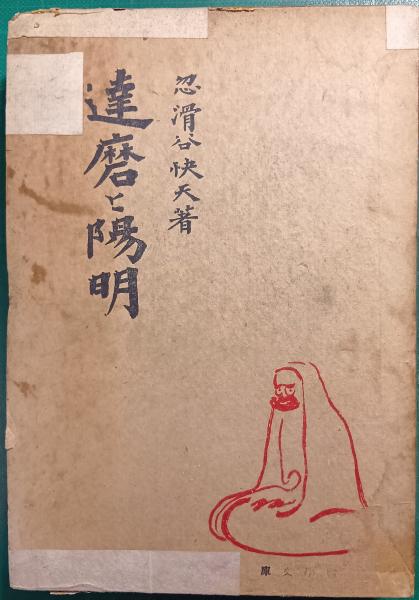 忽滑谷快天著
達磨と陽明
文庫